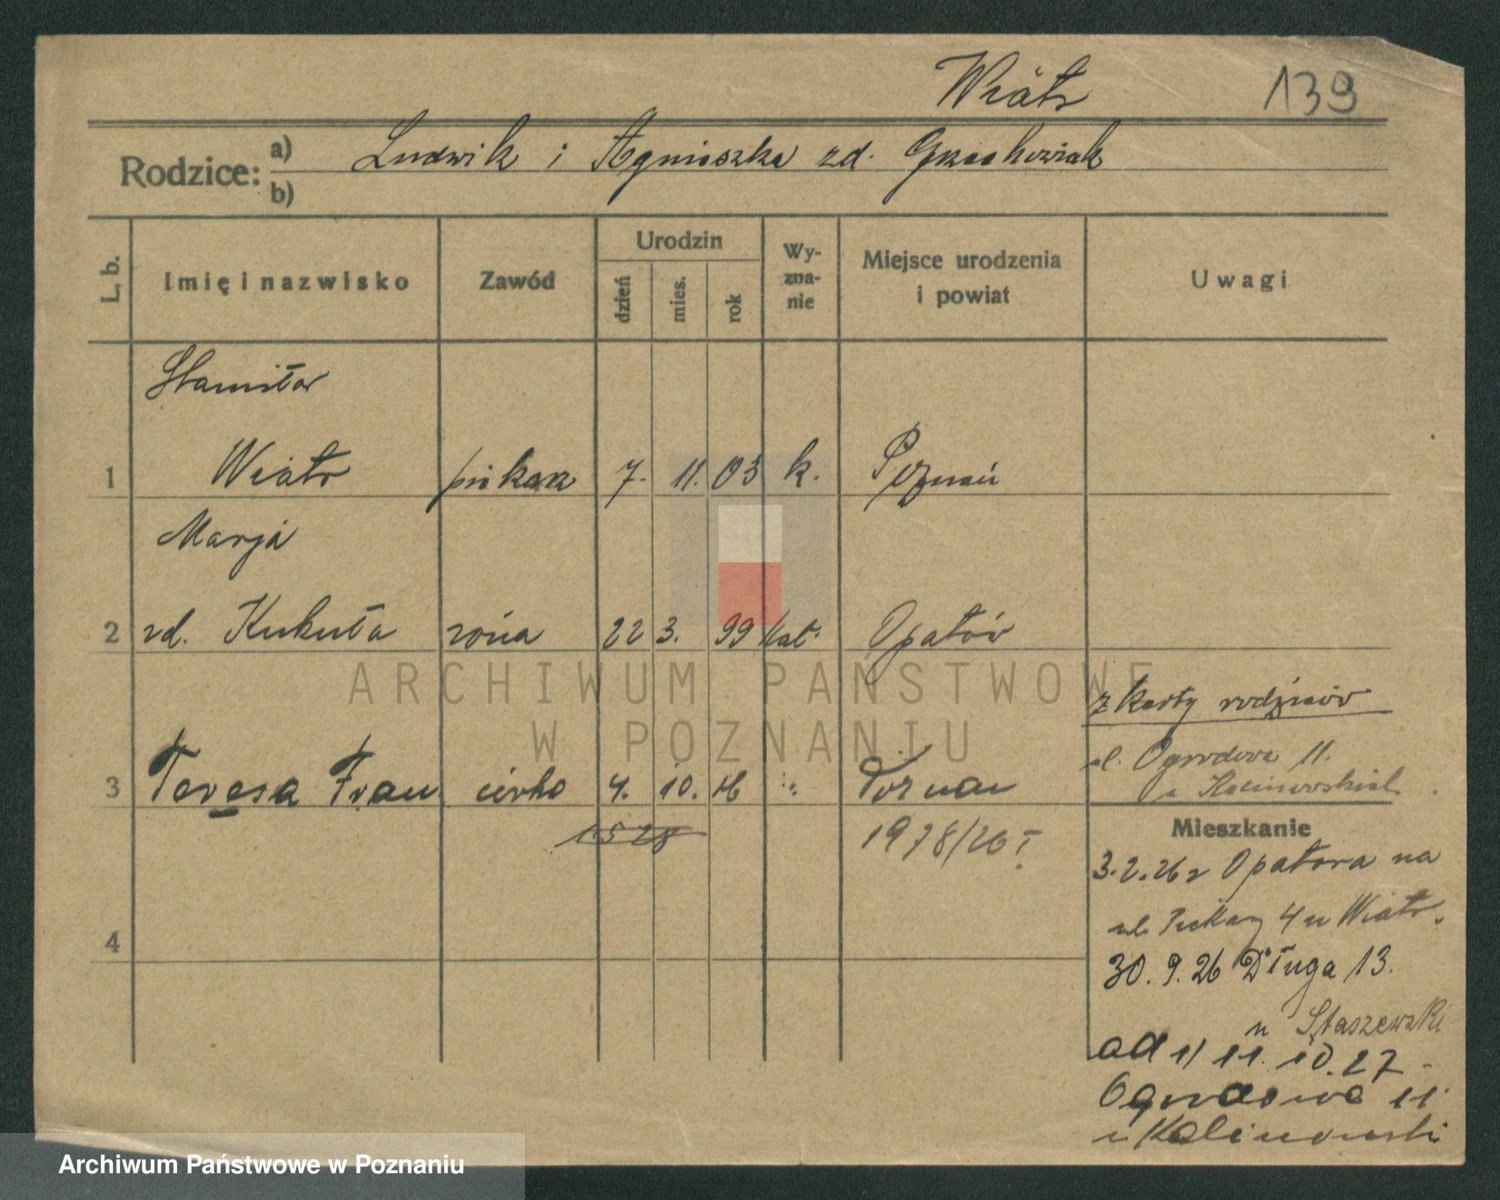 Wiatr 139
Rodzice: a) Ludwik i Agnieszka zd. Grochowiak
b)
L. b.
Imię i nazwisko
Zawód
Urodzin
dzień
mies.
rok
Wy-
zna-
nie
Miejsce urodzenia
i powiat
Uwagi
Stanisław
1 Wiatr piekarz 7. 11. 03 k. Poznań
Marja
2 zd. Kukuła żona 22 3. 99 kat. Opatów
z karty rodziców
ul. Ogrodowa 11.
u Kalinowskiach
3 Teresa Fran córka 4. 10. 26 Poznań
1528
1978/26 I
4
Mieszkanie
3.2.26 z Opatowa na
ul. Piekary 4 u Wiatr.
30.9.26 Długa 13.
u Staszewski
od 1/11.10.27
Ogrodowa 11
u Kalinowski
ARCHIWUM PAŃSTWOWE
W POZNANIU
Archiwum Państwowe w Poznaniu